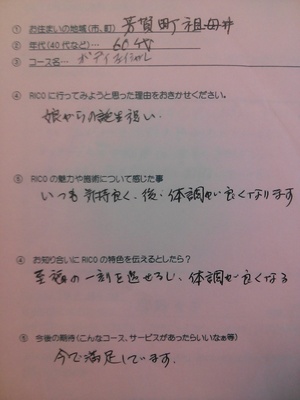 ① お住まいの地域(市、町) 芳賀町祖母井
② 年代(40代など)… 60代
③ コース名… ボディ&フェイシャル
④ RICOに行ってみようと思った理由をおきかせください。
娘からの誕生祝い。
⑤ RICOの魅力や施術について感じた事
いつも気持良く、後・体調が良くなります
④ お知り合いにRICOの特色を伝えるとしたら?
至福の一刻を過せるし、体調が良くなる
⑤ 今後の期待(こんなコース、サービスがあったらいいなぁ等)
今で満足しています。